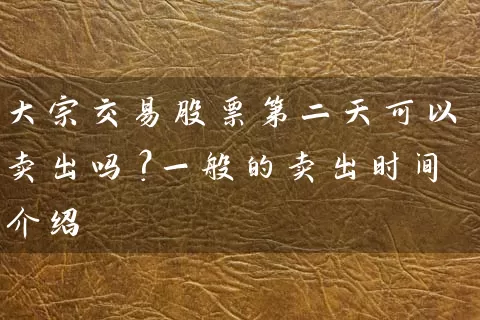 大宗交易股票第二天可以
卖出吗？一般的卖出时间
介绍